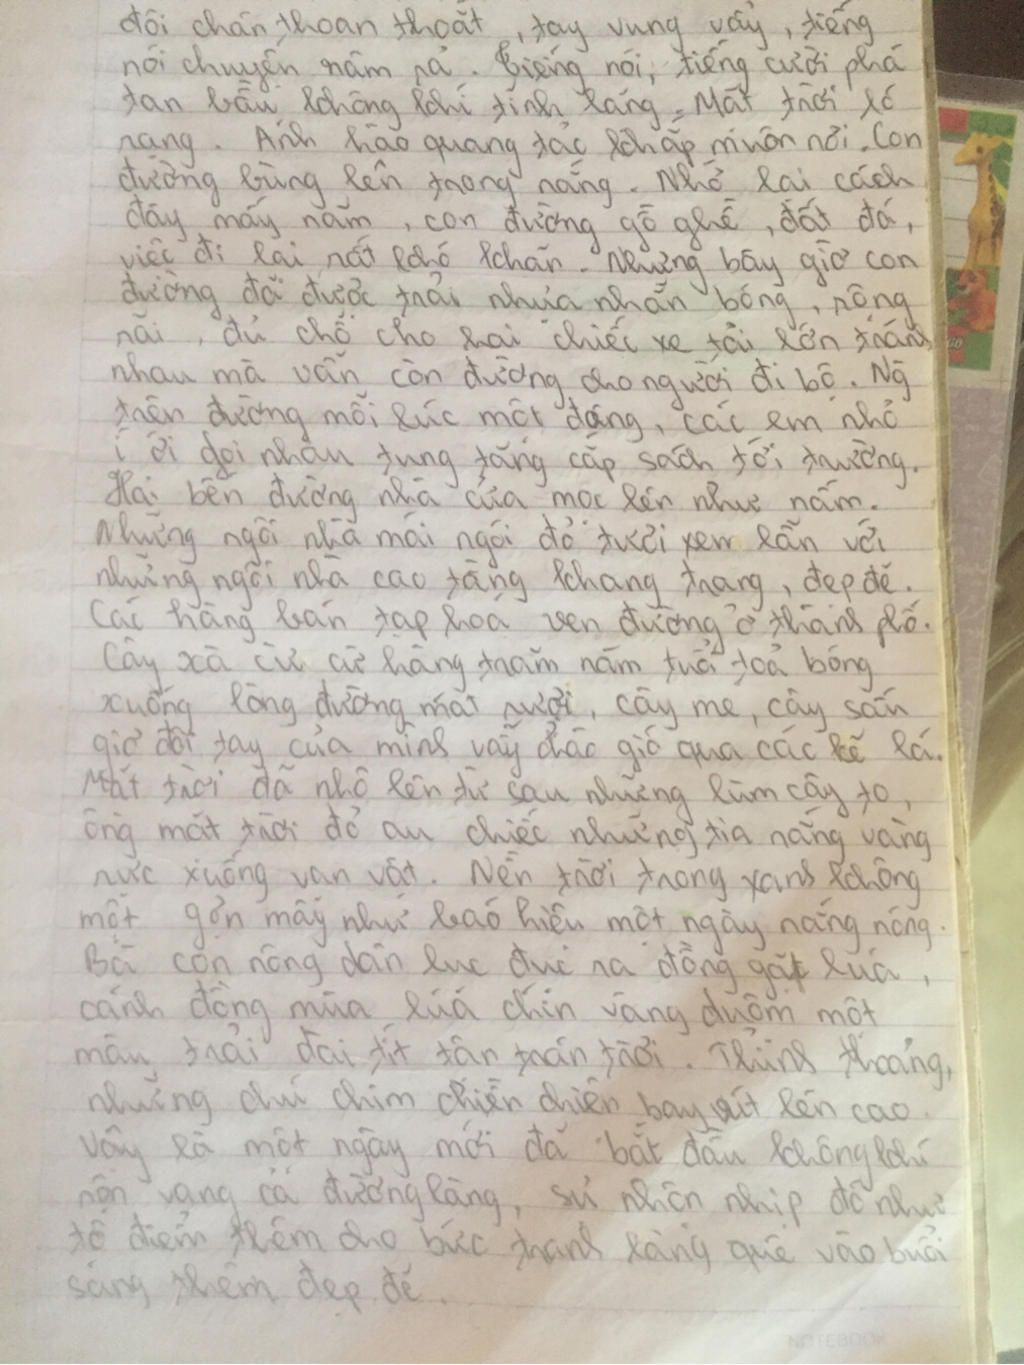 đôi chân thoan thoắt, tay vung vẩy, tiếng
nói chuyện râm rả. Tiếng nói, tiếng cười phá
tan bầu không khí tĩnh lặng. Mặt trời ló
rạng. Ánh hào quang tác khắp muôn nơi. Con
đường bừng lên trong nắng. Nhớ lại cách
đây mấy năm, con đường gồ ghề, đất đá,
việc đi lại rất khó khăn. Nhưng bây giờ con
đường đã được trải nhựa nhẵn bóng, rộng
rãi, đủ chỗ cho hai chiếc xe tải lớn tránh
nhau mà vẫn còn đường cho người đi bộ.
trên đường mỗi lúc một đông, các em nhỏ
í ới gọi nhau tung tăng cắp sách tới trường.
Hai bên đường nhà cửa mọc lên như nấm.
Những ngôi nhà mái ngói đỏ tươi xen lẫn với
những ngôi nhà cao tầng khang trang, đẹp đẽ.
Các hàng bán tạp hoá ven đường ở thành phố.
Cây xà cừ cừ hàng trăm năm tuổi toả bóng
xuống lòng đường mát rượi, cây me, cây sấu
giơ đôi tay của mình vẫy chào gió qua các kẽ lá.
Mặt trời đã nhô lên từ sau những lùm cây to,
ông mặt trời đỏ au chiếc những tia nắng vàng
rực xuống vạn vật. Nền trời trong xanh không
một gợn mây như báo hiệu một ngày nắng nóng.
Bà con nông dân lục đục ra đồng gặt lúa,
cánh đồng mùa lúa chín vàng duộm một
màu, trải dài tít tận trân trời. Thỉnh thoảng,
những chú chim chiền chiện bay vút lên cao.
Vậy là một ngày mới đã bắt đầu không khí
rộn vang cả đường làng, sự nhộn nhịp đó như
tô điểm thêm cho bức tranh làng quê vào buổi
sáng thêm đẹp đẽ.
NOTEBOOK